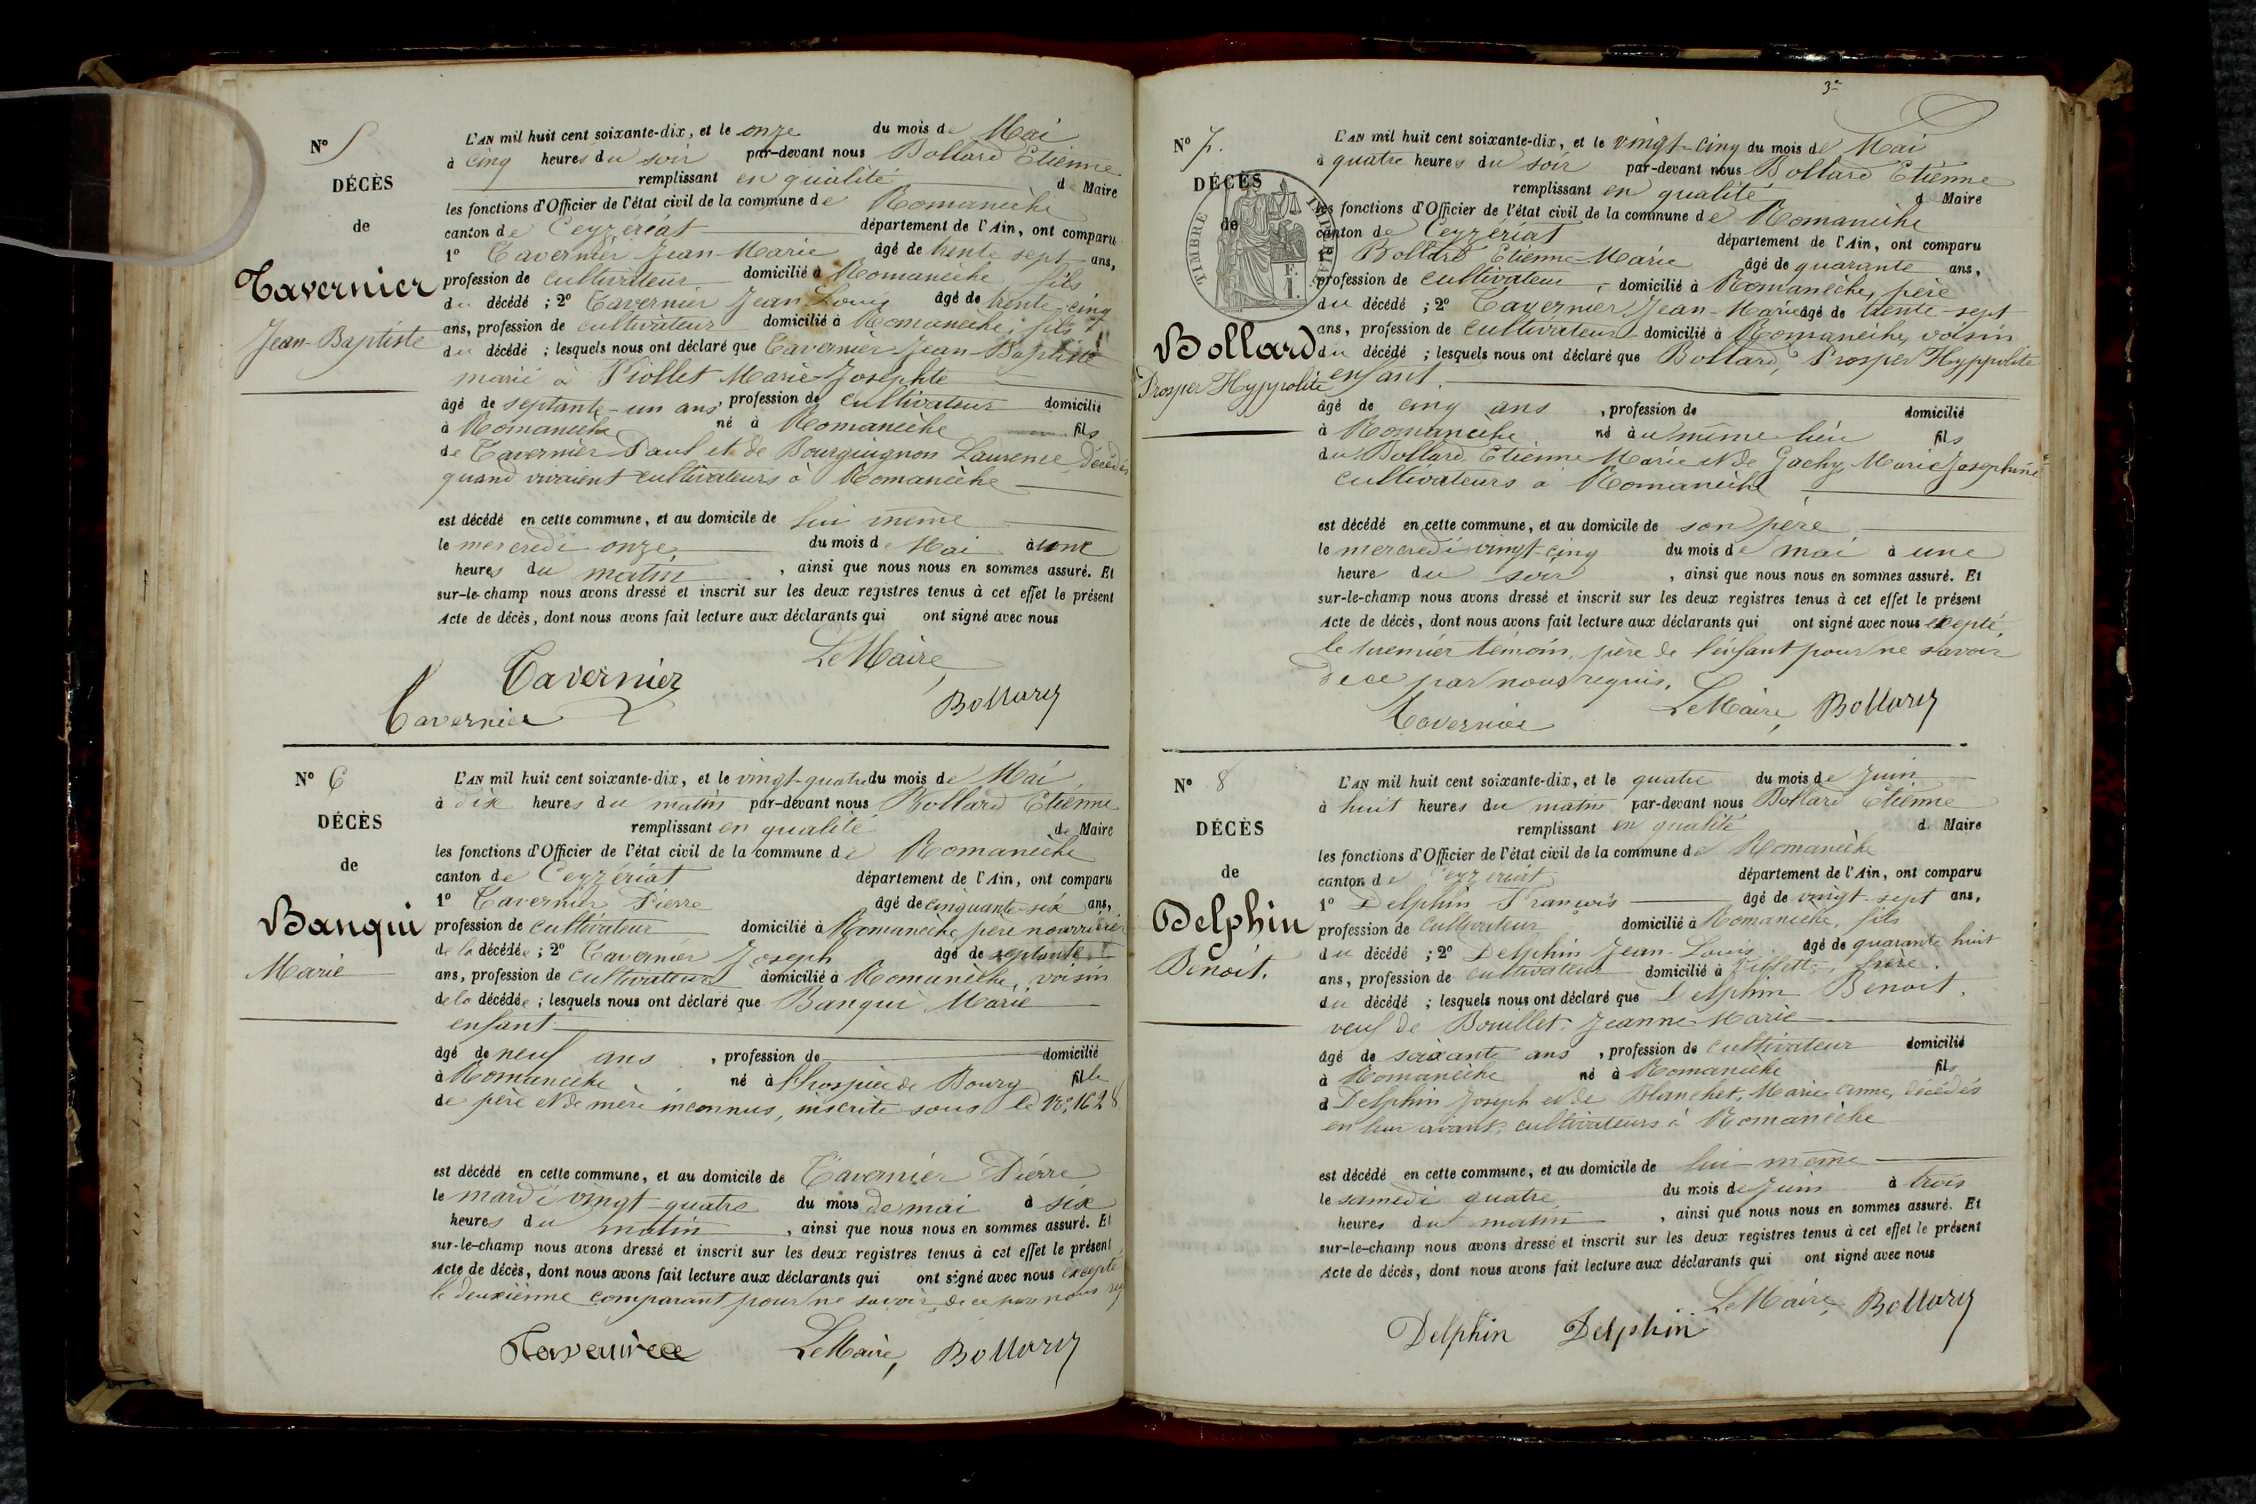 N° 5
DÉCÈS
de
Tavernier
Jean-Baptiste
L'AN mil huit cent soixante-dix, et le onze du mois de Mai
à cinq heures du soir par-devant nous Bollard Etienne
remplissant en qualité de Maire
les fonctions d'Officier de l'état civil de la commune de Romanèche
canton de Ceyzériat département de l'Ain, ont comparu
1° Tavernier Jean-Marie âgé de trente sept ans,
profession de cultivateur domicilié à Romanèche fils
du décédé ; 2° Tavernier Jean Louis âgé de trente-cinq
ans, profession de cultivateur domicilié à Romanèche, fils
du décédé ; lesquels nous ont déclaré que Tavernier Jean-Baptiste
marié à Piollet Marie-Josephte
âgé de septante-un ans, profession de cultivateur domicilié
à Romanèche né à Romanèche fils
de Tavernier Paul et de Bourguignon Laurence décédés
quand vivaient cultivateurs à Romanèche
est décédé en cette commune, et au domicile de lui même
le mercredi onze du mois de Mai à une
heures du matin, ainsi que nous nous en sommes assuré. Et
sur-le-champ nous avons dressé et inscrit sur les deux registres tenus à cet effet le présent
Acte de décès, dont nous avons fait lecture aux déclarants qui ont signé avec nous
Le Maire,
Tavernier
Tavernier Bollard
N° 6
DÉCÈS
de
Banqui
Marie
L'AN mil huit cent soixante-dix, et le vingt-quatre du mois de Mai
à dix heures du matin par-devant nous Bollard Etienne
remplissant en qualité de Maire
les fonctions d'Officier de l'état civil de la commune de Romanèche
canton de Ceyzériat département de l'Ain, ont comparu
1° Tavernier Pierre âgé de cinquante-six ans,
profession de cultivateur domicilié à Romanèche, père nourricier
de la décédée ; 2° Tavernier Joseph âgé de septante
ans, profession de cultivateur domicilié à Romanèche, voisin
de la décédée ; lesquels nous ont déclaré que Banqui Marie
enfant
âgé de neuf ans, profession de domicilié
à Romanèche né à l'hospice de Bourg fille
de père et de mère inconnus, inscrite sous le N° 1628
est décédé en cette commune, et au domicile de Tavernier Pierre
le mardi vingt-quatre du mois de mai à six
heures du matin, ainsi que nous nous en sommes assuré. Et
sur-le-champ nous avons dressé et inscrit sur les deux registres tenus à cet effet le présent
Acte de décès, dont nous avons fait lecture aux déclarants qui ont signé avec nous excepté
le deuxième comparant pour ne savoir, de ce par nous req
Le Maire, Bollard
3e
N° 7.
DÉCÈS
de
TIMBRE IMPERIAL
Bollard
Prosper Hyppolite
L'AN mil huit cent soixante-dix, et le vingt-cinq du mois de Mai
à quatre heures du soir par-devant nous Bollard Etienne
remplissant en qualité de Maire
les fonctions d'Officier de l'état civil de la commune de Romanèche
canton de Ceyzériat département de l'Ain, ont comparu
1° Bollard Etienne-Marie âgé de quarante ans,
profession de cultivateur, domicilié à Romanèche, père
du décédé ; 2° Tavernier Jean-Marie âgé de trente-sept
ans, profession de cultivateur domicilié à Romanèche, voisin
du décédé ; lesquels nous ont déclaré que Bollard, Prosper Hyppolite
enfant.
âgé de cinq ans, profession de domicilié
à Romanèche né à u même lieu fils
du Bollard Etienne Marie et de Gachy, Marie Josephine
cultivateurs à Romanèche
est décédé en cette commune, et au domicile de son père
le mercredi vingt-cinq du mois de mai à une
heure du soir, ainsi que nous nous en sommes assuré. Et
sur-le-champ nous avons dressé et inscrit sur les deux registres tenus à cet effet le présent
Acte de décès, dont nous avons fait lecture aux déclarants qui ont signé avec nous excepté,
le premier témoin, père de l'enfant pour ne savoir
de ce par nous requis.
Tavernier Le Maire, Bollard
N° 8
DÉCÈS
de
Delphin
Benoit.
L'AN mil huit cent soixante-dix, et le quatre du mois de Juin
à huit heures du matin par-devant nous Bollard Etienne
remplissant en qualité de Maire
les fonctions d'Officier de l'état civil de la commune de Romanèche
canton de Ceyzériat département de l'Ain, ont comparu
1° Delphin François âgé de vingt-sept ans,
profession de cultivateur domicilié à Romanèche, fils
du décédé ; 2° Delphin Jean-Louis âgé de quarante huit
ans, profession de cultivateur domicilié à Villette, frère.
du décédé ; lesquels nous ont déclaré que Delphin Benoit.
veuf de Bouillet Jeanne Marie
âgé de soixante ans, profession de cultivateur domicilié
à Romanèche né à Romanèche fils
d Delphin Joseph et de Blanchet, Marie Anne, décédés
en leur vivant, cultivateurs à Romanèche
est décédé en cette commune, et au domicile de lui-même
le samedi quatre du mois de Juin à trois
heures du matin, ainsi que nous nous en sommes assuré. Et
sur-le-champ nous avons dressé et inscrit sur les deux registres tenus à cet effet le présent
Acte de décès, dont nous avons fait lecture aux déclarants qui ont signé avec nous
Le Maire, Bollard
Delphin Delphin